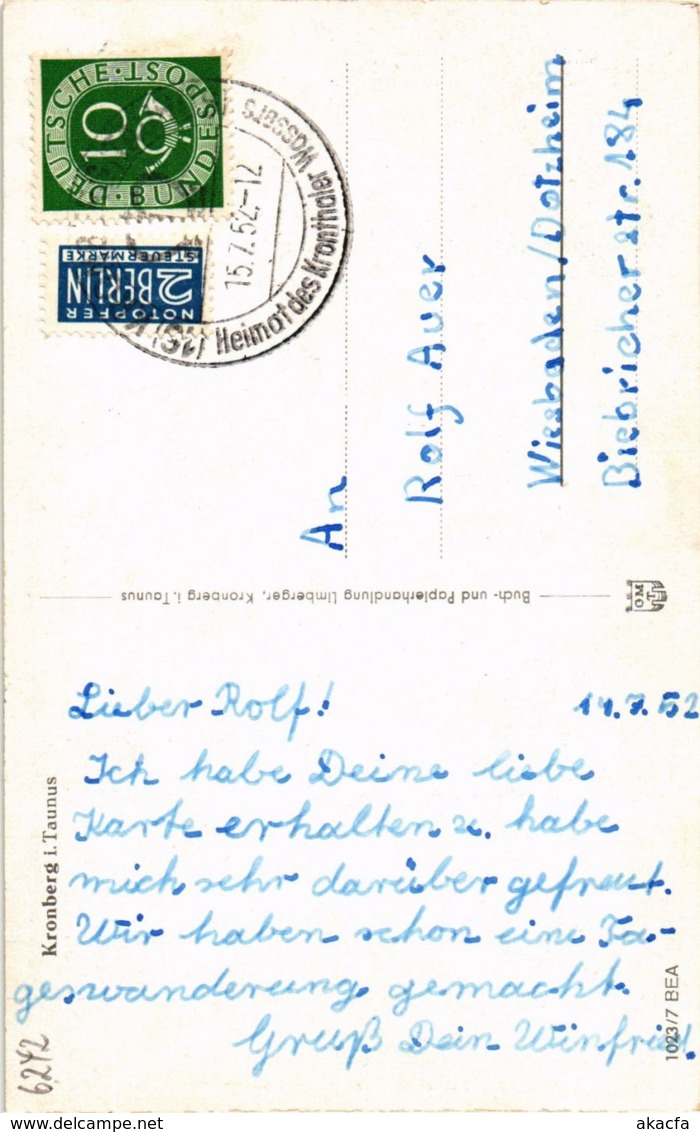 DEUTSCHE · BUNDESPOST
10
NOTOPFER
2 BERLIN
STEUERMARKE
(16) Heimat des Kronthaler Wassers
15.7.52.-12
An
Rolf Auer
Wiesbaden/Dotzheim
Biebricherstr. 184
Buch- und Papierhandlung Limberger, Kronberg i. Taunus
OMT
Lieber Rolf! 14.7.52
Ich habe Deine liebe
Karte erhalten u. habe
mich sehr darüber gefreut.
Wir haben schon eine Ta-
geswanderung gemacht.
Gruß Dein Winfried.
Kronberg i. Taunus
1023/7 BEA
6242
www.delcampe.net
akacfa